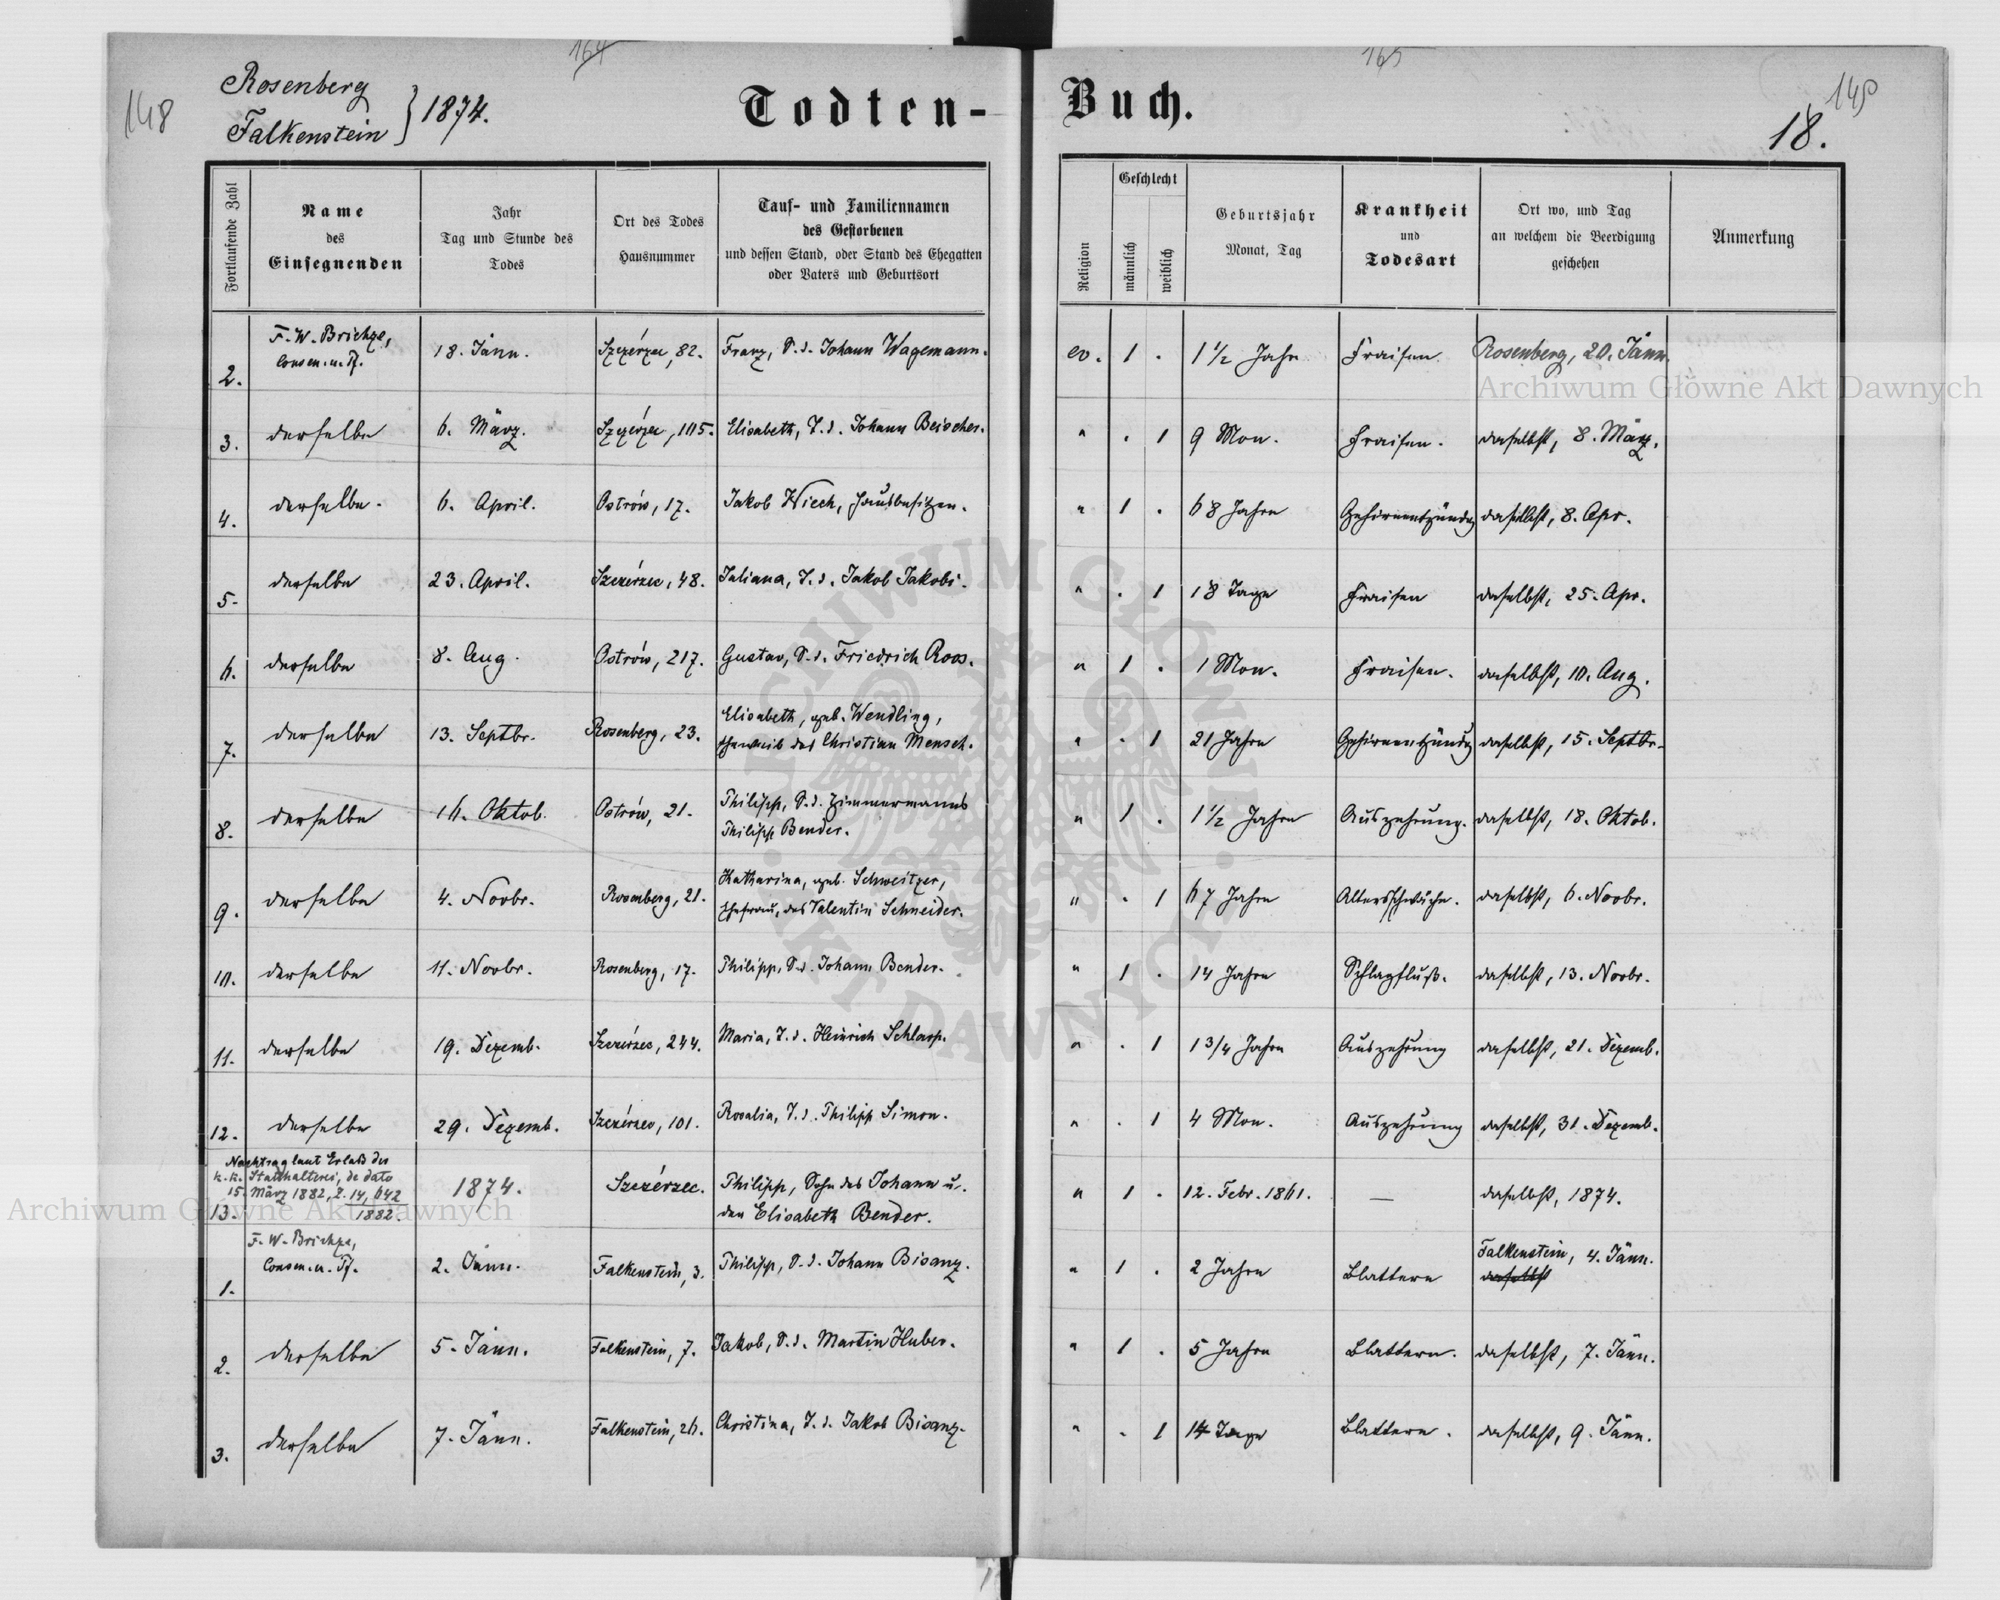 164
165
148
149
Rosenberg
Falkenstein } 1874.
Todten-Buch.
18.
Fortlaufende Zahl
Name
des
Einsegnenden
Jahr
Tag und Stunde des
Todes
Ort des Todes
Hausnummer
Tauf- und Familiennamen
des Gestorbenen
und dessen Stand, oder Stand des Ehegatten
oder Vaters und Geburtsort
Religion
Geschlecht
männlich
weiblich
Geburtsjahr
Monat, Tag
Krankheit
und
Todesart
Ort wo, und Tag
an welchem die Beerdigung
geschehen
Anmerkung
F. W. Brichze,
Consen. u. Pf.
2. 18. Jänn. Szczérzec, 82. Franz, S. d. Johann Wagemann. ev. 1 . 1 1/2 Jahr Fraisen. Rosenberg, 20. Jänn.
3. derselbe 6. März. Szczérzec, 105. Elisabeth, T. d. Johann Beischer. " . 1 9 Mon. Fraisen. daselbst, 8. März.
4. derselbe. 6. April. Ostrów, 17. Jakob Wiech, Hausbesitzer. " 1 . 68 Jahre Gehirnentzündg daselbst, 8. Apr.
5. derselbe 23. April. Szczérzec, 48. Juliana, T. d. Jakob Jakobi. " . 1 18 Tage Fraisen daselbst, 25. Apr.
6. derselbe 8. Aug. Ostrów, 217. Gustav, S. d. Friedrich Roos. " 1 . 1 Mon. Fraisen. daselbst, 10. Aug.
7. derselbe 13. Septbr. Rosenberg, 23. Elisabeth, geb. Wendling,
Eheweib des Christian Mensch. " . 1 21 Jahre Gehirnentzündg daselbst, 15. Septbr.
8. derselbe 16. Oktob. Ostrów, 21. Philipp, S. d. Zimmermanns
Philipp Bender. " 1 . 1 1/2 Jahre Auszehrung. daselbst, 18. Oktob.
9. derselbe 4. Novbr. Rosenberg, 21. Katharina, geb. Schweitzer,
Ehefrau, des Valentin Schneider. " . 1 67 Jahre Altersschwäche. daselbst, 6. Novbr.
10. derselbe 11. Novbr. Rosenberg, 17. Philipp, S. d. Johann Bender. " 1 . 14 Jahre Schlagfluß. daselbst, 13. Novbr.
11. derselbe 19. Dezemb. Szczérzec, 244. Maria, T. d. Heinrich Schlarp. " . 1 1 3/4 Jahre Auszehrung daselbst, 21. Dezemb.
12. derselbe 29. Dezemb. Szczérzec, 101. Rosalia, T. d. Philipp Simon. " . 1 4 Mon. Auszehrung daselbst, 31. Dezemb.
Nachtrag laut Erlaß der
k. k. Statthalterei, de dato
15. März 1882, Z. 14,642
1882.
13. 1874. Szczérzec. Philipp, Sohn des Johann u.
der Elisabeth Bender. " 1 . 12. Febr. 1861. — daselbst, 1874.
F. W. Brichze,
Consen. u. Pf.
1. 2. Jänn. Falkenstein, 3. Philipp, S. d. Johann Bisanz. " 1 . 2 Jahre Blattern Falkenstein, 4. Jänn.
daselbst
2. derselbe 5. Jänn. Falkenstein, 7. Jakob, S. d. Martin Huber. " 1 . 5 Jahre Blattern. daselbst, 7. Jänn.
3. derselbe 7. Jänn. Falkenstein, 26. Christina, T. d. Jakob Bisanz. " . 1 14 Tage Blattern. daselbst, 9. Jänn.
Archiwum Główne Akt Dawnych
Archiwum Główne Akt Dawnych
ARCHIWUM GŁÓWNE AKT DAWNYCH